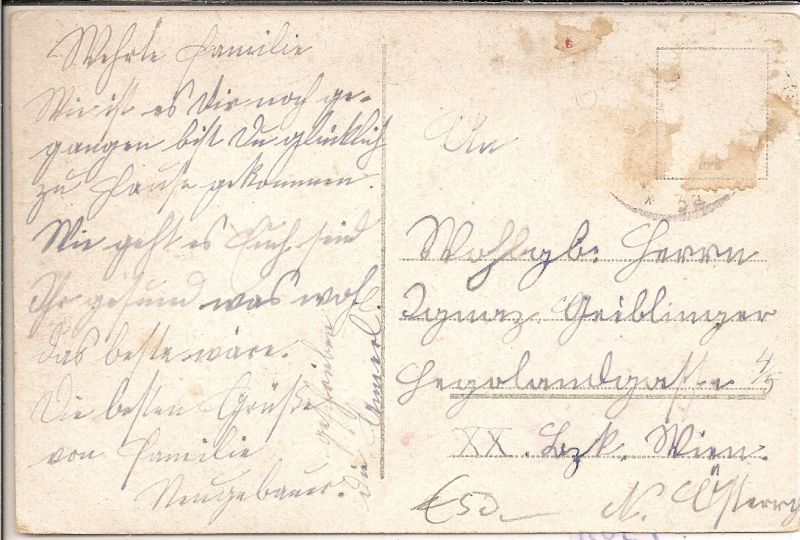 Wehrte Familie
Wie ist es Dir noch ge-
gangen bist Du glücklich
zu Hause gekommen.
Wie geht es Euch seid
Ihr gesund was wohl
das beste wäre.
Die besten Grüße
von Familie
Neugebauer.
geschrieben
die
An
Wohlgb. Herrn
Ignaz Geiblinger
Hegolandgasse 4/5
XX. Bzk. Wien.
N. Österr
€50
* 3a